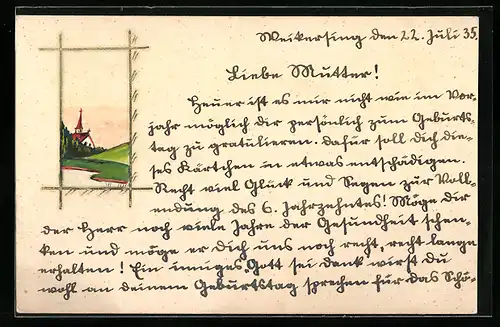 Weikersing den 22. Juli 35.
Liebe Mutter!
Heuer ist es mir nicht wie im Vor-
jahr möglich dir persönlich zum Geburts-
tag zu gratulieren. Dafür soll dich die-
ses Kärtchen in etwas entschädigen.
Recht viel Glück und Segen zur Voll-
endung des 6. Jahrzehntes! Möge dir
der Herr noch viele Jahre der Gesundheit schen-
ken und möge er Dich uns noch recht, recht lange
erhalten! Ein inniges, Gott sei dank wirst du
wohl an deinem Geburtstag sprechen für das Schö-